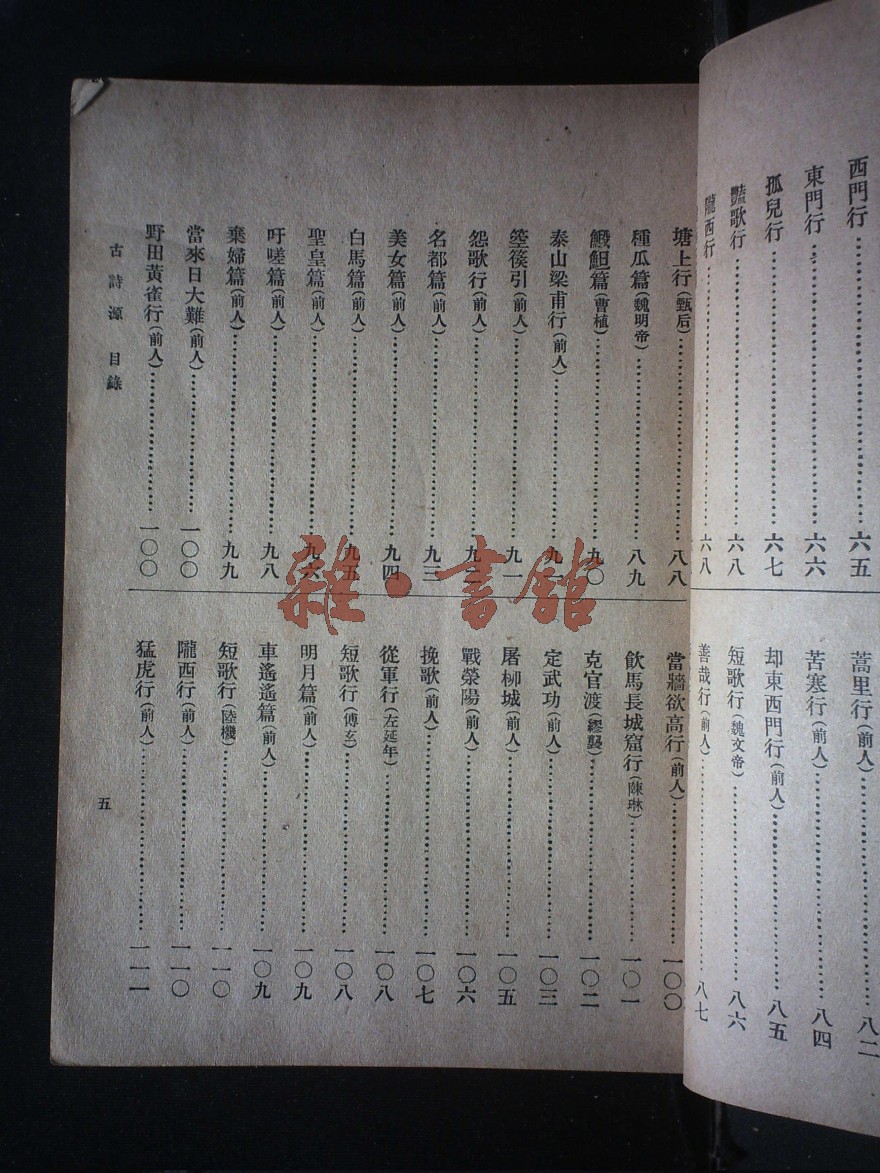 西門行……六五
東門行……六六
孤兒行……六七
豔歌行……六八
隴西行……六八
蒿里行(前人)……八二
苦寒行(前人)……八四
却東西門行(前人)……八五
短歌行(魏文帝)……八六
善哉行(前人)……八七
塘上行(甄后)……八八
種瓜篇(魏明帝)……八九
鰕䱇篇(曹植)……九〇
泰山梁甫行(前人)……九一
箜篌引(前人)……九一
怨歌行(前人)……九二
名都篇(前人)……九三
美女篇(前人)……九四
白馬篇(前人)……九五
聖皇篇(前人)……九六
吁嗟篇(前人)……九八
棄婦篇(前人)……九九
當來日大難(前人)……一〇〇
野田黃雀行(前人)……一〇〇
當牆欲高行(前人)……一〇〇
飲馬長城窟行(陳琳)……一〇一
克官渡(繆襲)……一〇二
定武功(前人)……一〇三
屠柳城(前人)……一〇五
戰滎陽(前人)……一〇六
挽歌(前人)……一〇七
從軍行(左延年)……一〇八
短歌行(傅玄)……一〇八
明月篇(前人)……一〇九
車遙遙篇(前人)……一〇九
短歌行(陸機)……一一〇
隴西行(前人)……一一〇
猛虎行(前人)……一一一
古詩源 目錄
五
雜·書館